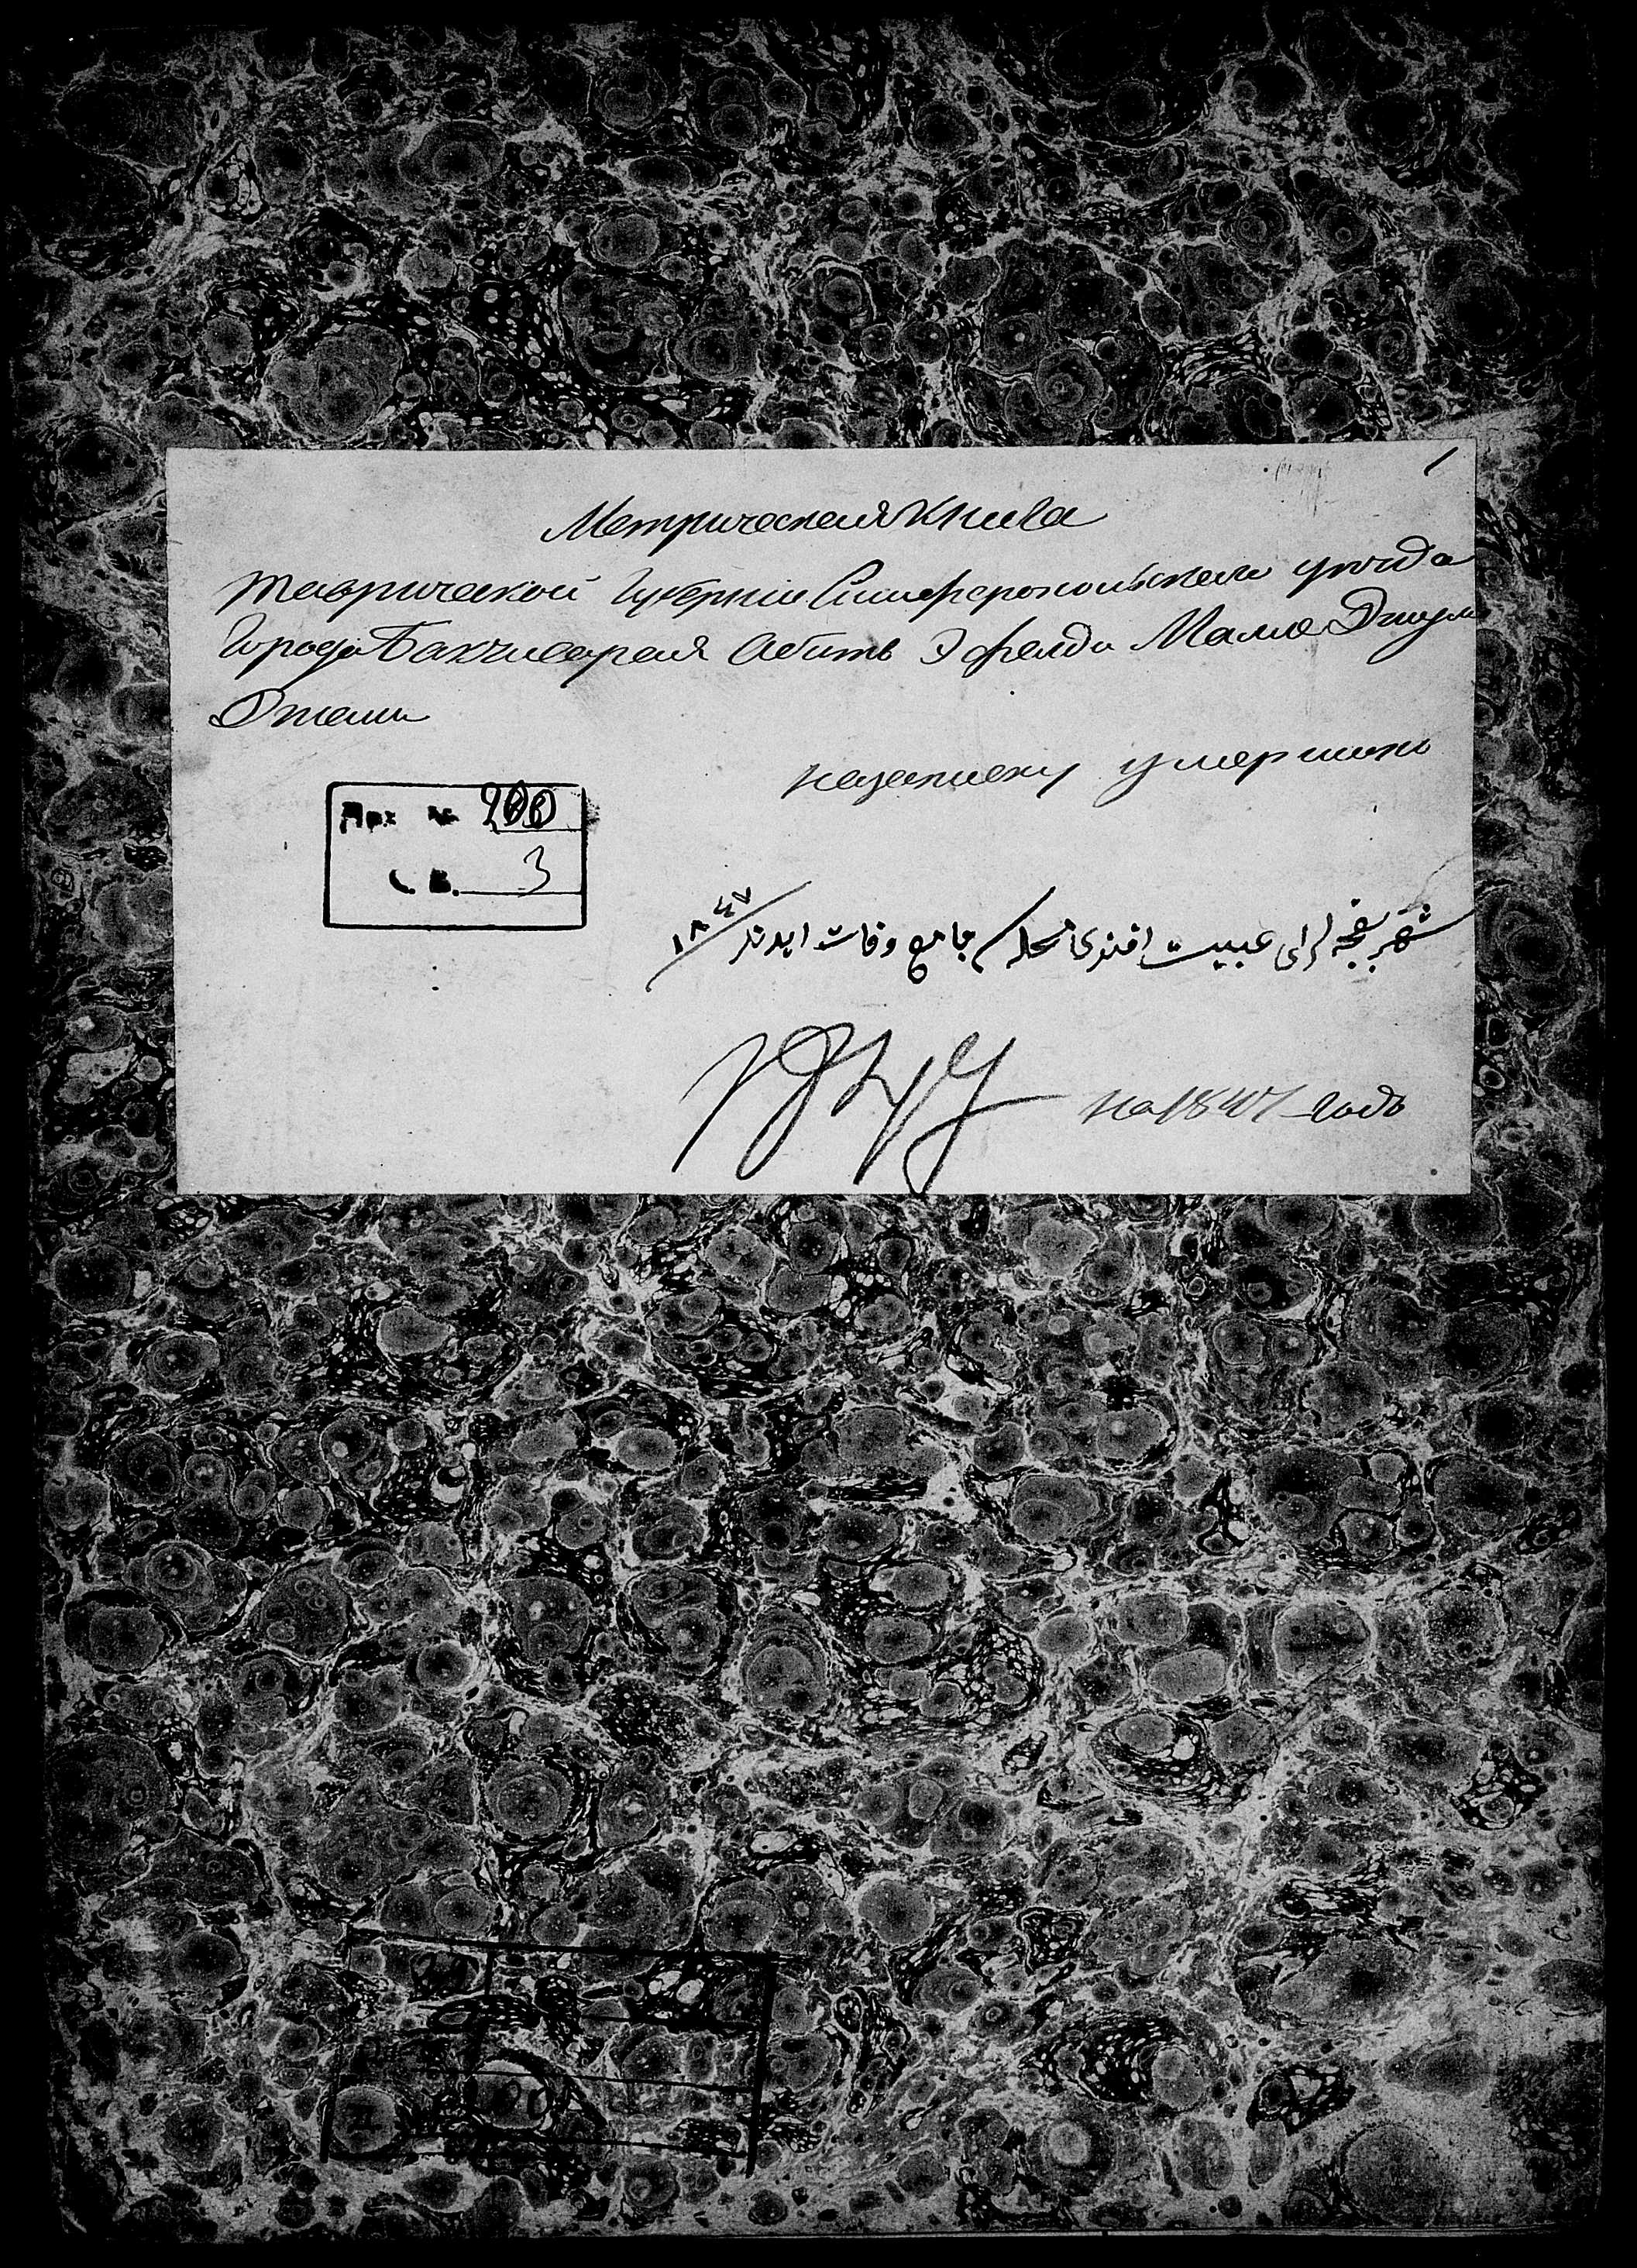 1
Метрическая Книга
Таврической Губернии Симферопольского уезда
Города Бахчисарая Абитъ Эфенди Мале Джума
Джами
назаписку умершихъ
Арх № 200
С. В. 3
شهر بغچه سراى عبيت افندى محله سى جامع وفات ايدنلر ١٨٤٧
на 1847 годъ